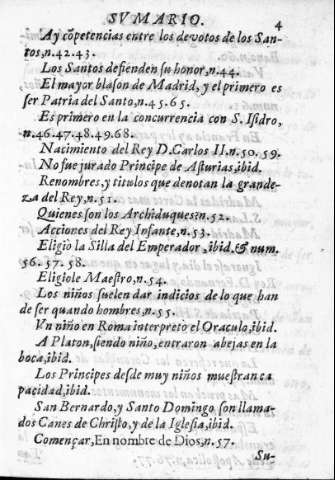 SVMARIO. 4
Ay cõpetencias entre los devotos de los San-
tos,n.42.43.
Los Santos defienden ſu honor,n.44.
El mayor blaſon de Madrid, y el primero es
ſer Patria del Santo,n.45.65.
Es primero en la concurrencia con S. Iſidro,
n.46.47.48.49.68.
Nacimiento del Rey D.Carlos II.n.50.59.
No fue jurado Principe de Aſturias,ibid.
Renombres,y titulos que denotan la grande-
za del Rey,n.51.
Quienes ſon los Archiduques?n.52.
Acciones del Rey Infante,n.53.
Eligiò la Silla del Emperador,ibid.& num.
56. 57.58.
Eligiole Maeſtro,n.54.
Los niños ſuelen dar indicios de lo que han
de ſer quando hombres,n.55.
Vn niño en Roma interpretò el Oraculo,ibid.
A Platon,ſiendo niño,entraron abejas en la
boca,ibid.
Los Principes deſde muy niños mueſtran ca
pacidad,ibid.
San Bernardo,y Santo Domingo ſon llama-
dos Canes de Chriſto,y de la Igleſia,ibid.
Començar,En nombre de Dios,n.57.
Su-